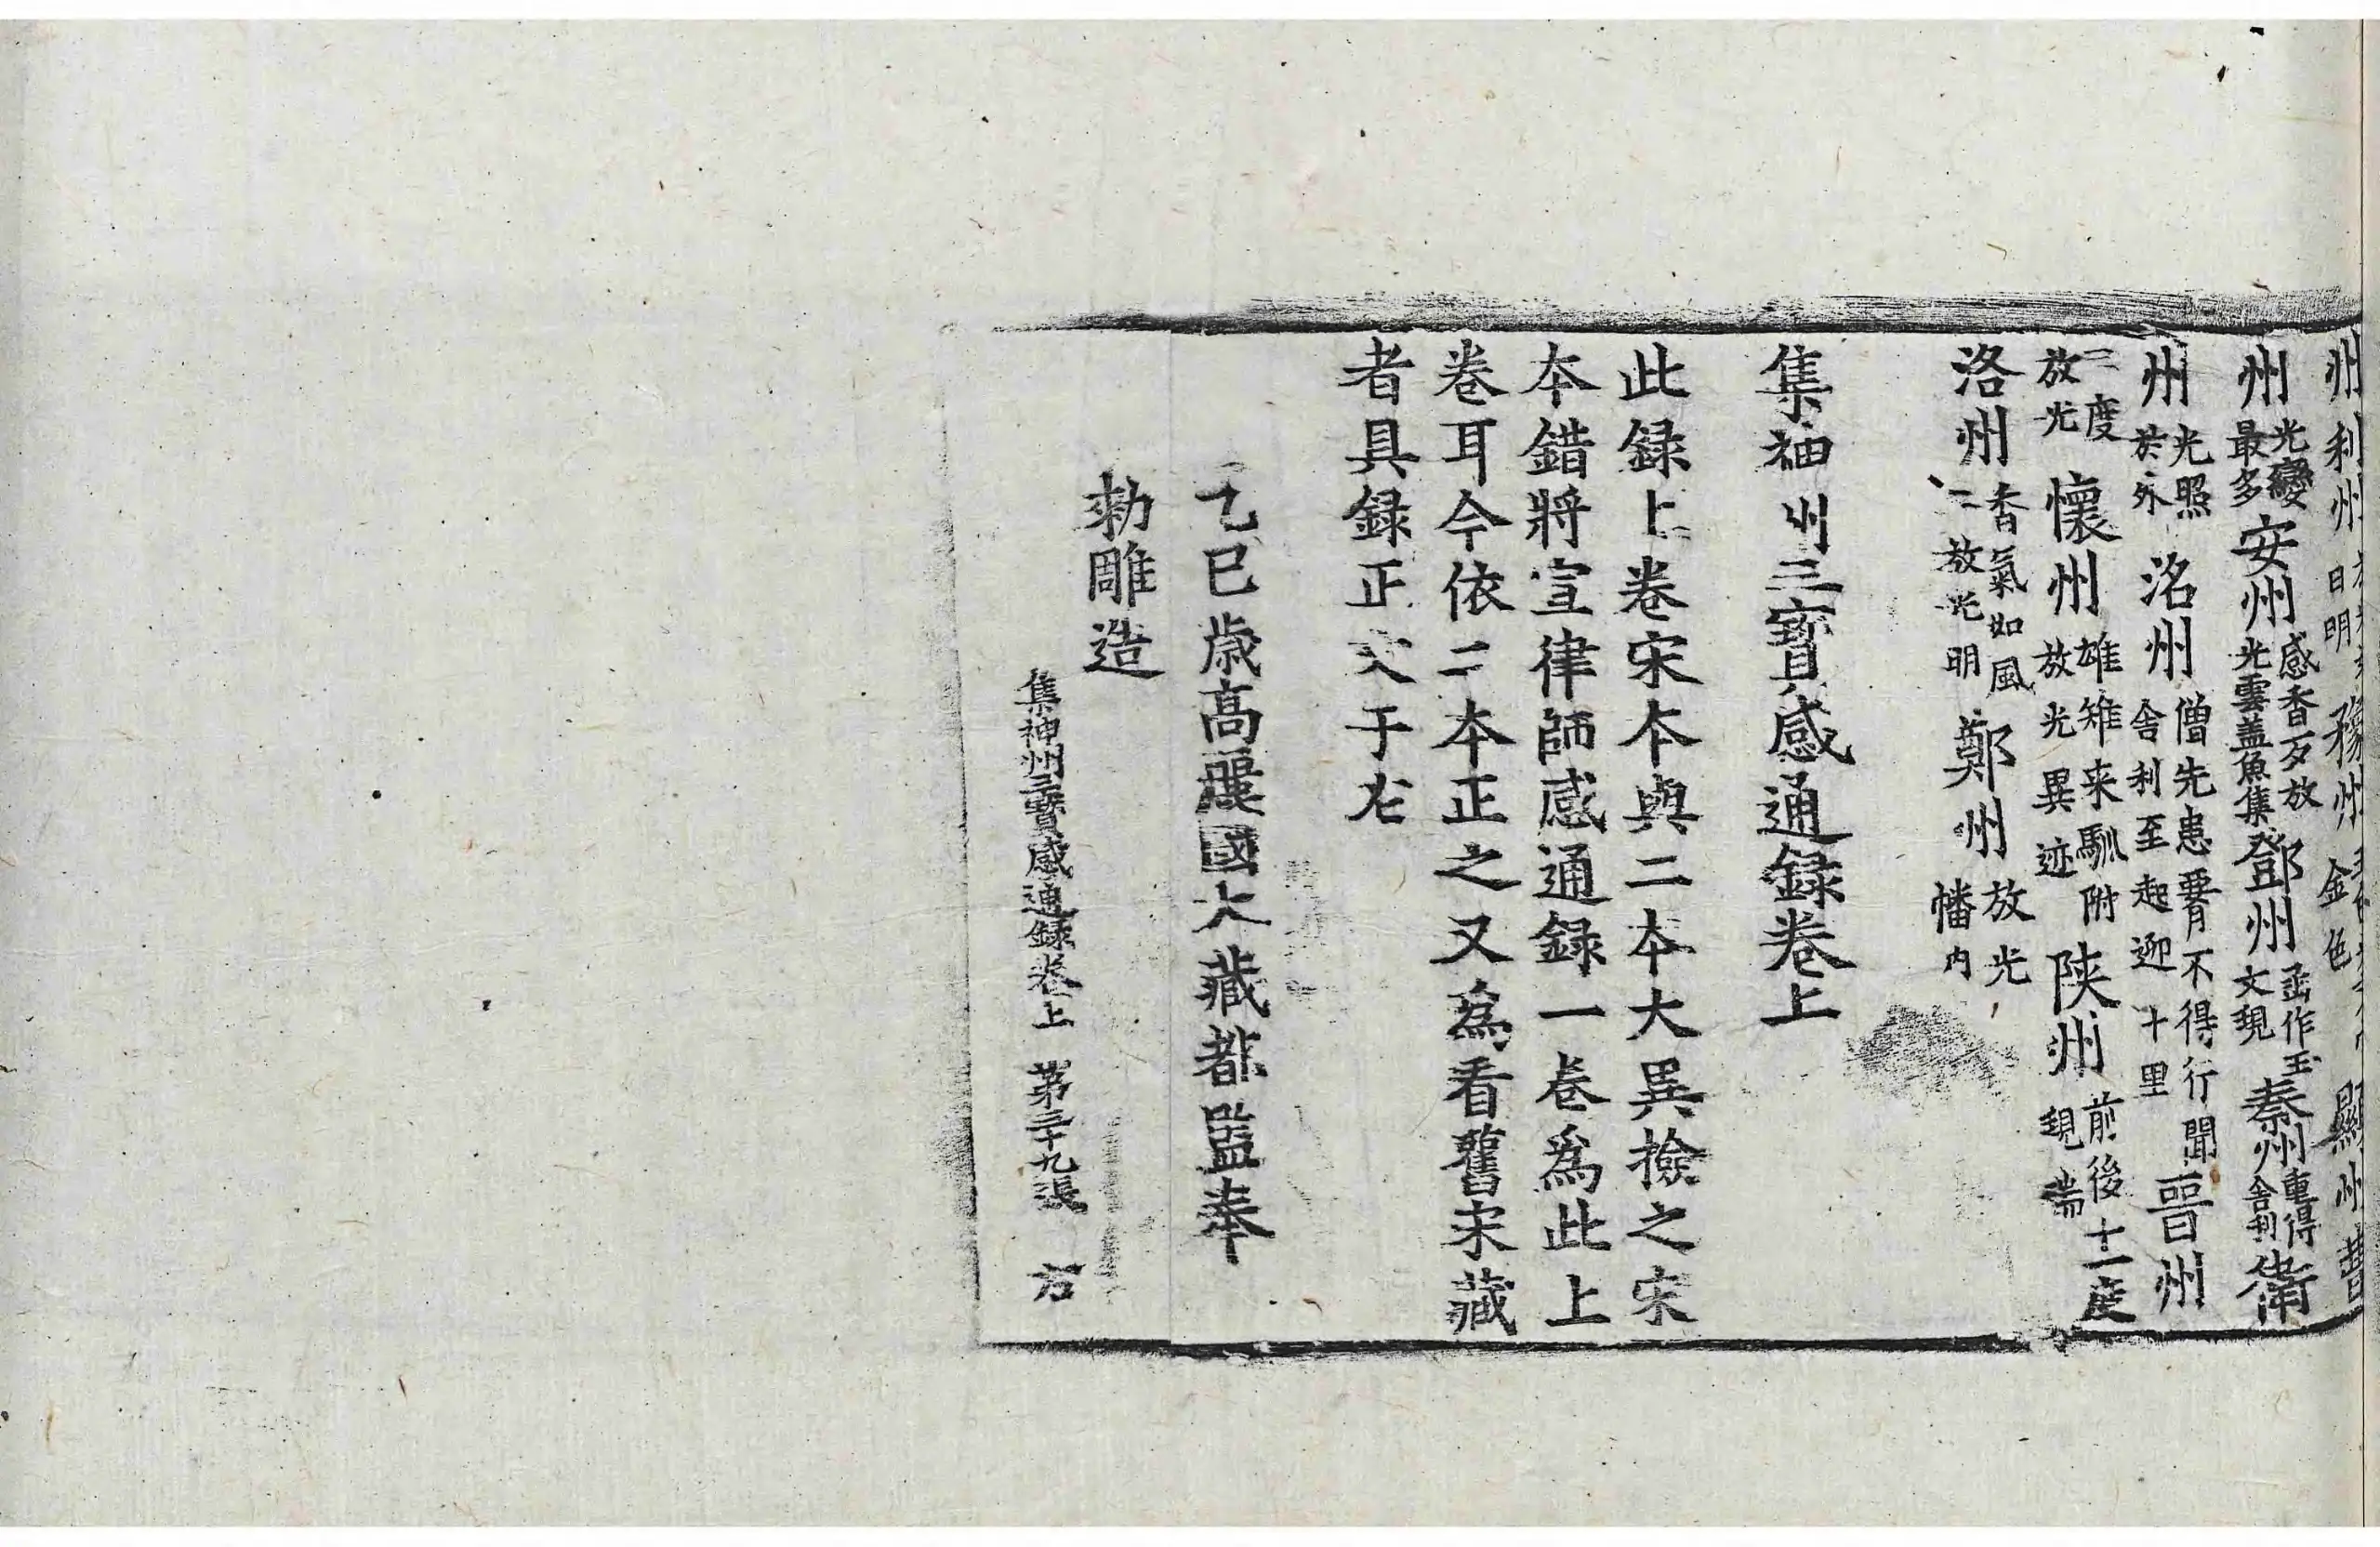 州利州 日明 豫州 金色 顯州曹
州 光變最多 安州 感香歹放光雲盖魚集 鄧州 函作玉文現 秦州 重得舎利 衛
州 光照於外 洺州 僧先患𦝫不得行聞舎利至起迎十里 晋州
二度放光 懷州 雄雉来馴附放光異迹 陝州 前後十一度現瑞
洛州 香氣如風二放光明 鄭州 放光幡内
集神州三寳感通録卷上
此録上卷宋夲與二夲大異撿之宋
夲錯將宣律師感通録一卷為此上
卷耳今依二夲正之又為看舊宋藏
者具録正文于左
乙巳歳高麗國大藏都監奉
勑雕造
集神州三寳感通録卷上 第三十九張 方